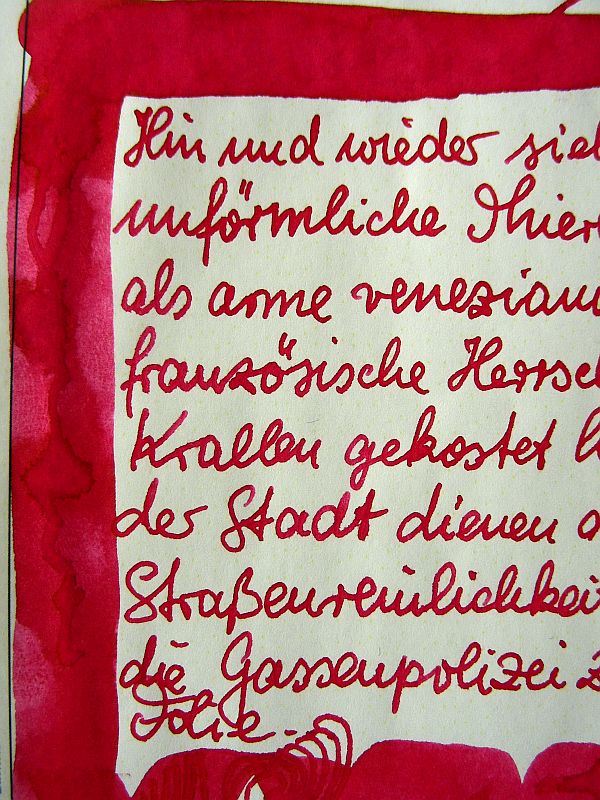 Hin und wieder sieh
unförmliche Thier
als arme veneziani
französische Herrsch
Krallen gekostet h
der Stadt dienen a
Straßenreinlichkei
die Gassenpolizei z
Folie.